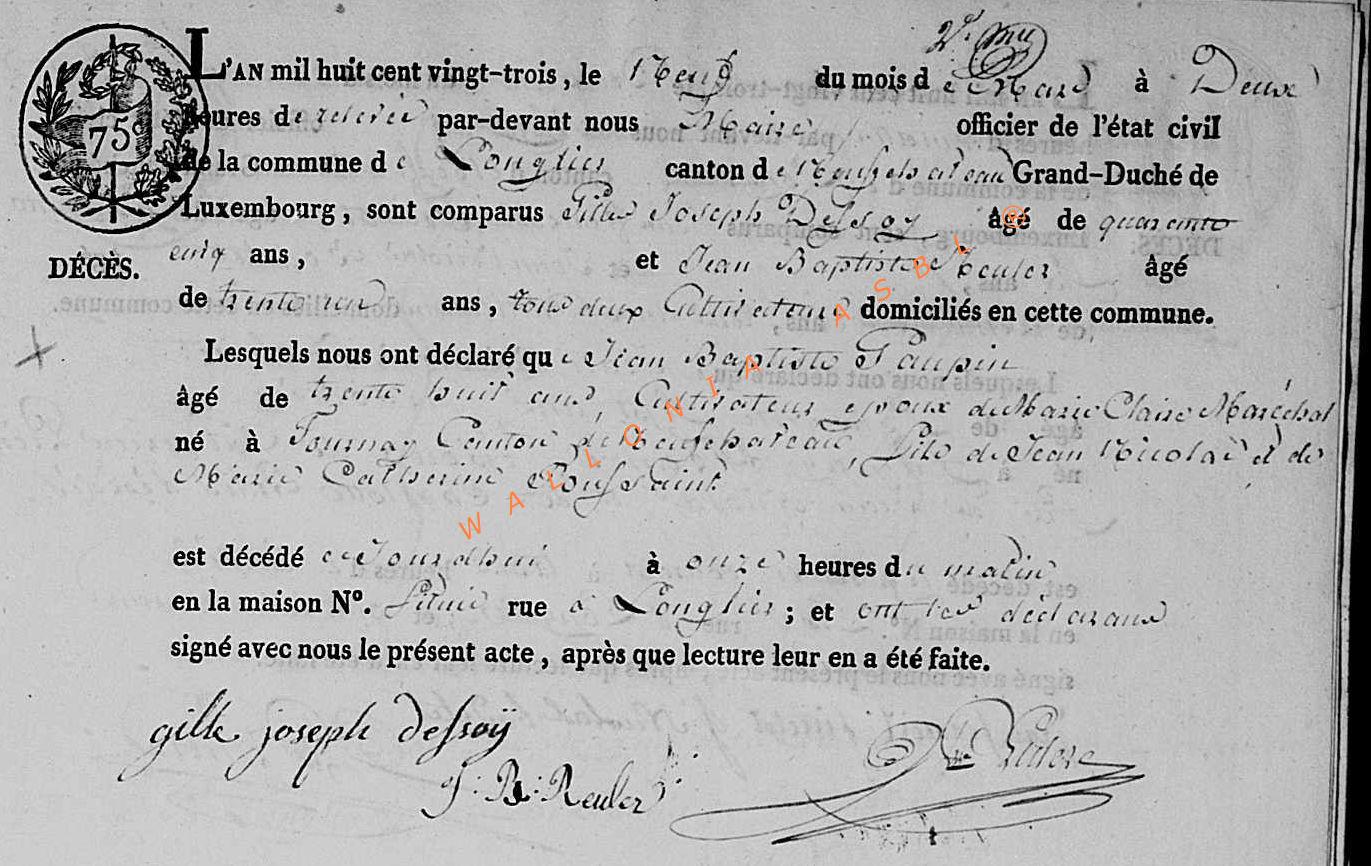 75
L'AN mil huit cent vingt-trois, le Neuf du mois de Mars à Deux
heures de relevée par-devant nous Maire officier de l'état civil
de la commune de Longlier canton de Neufchateau Grand-Duché de
Luxembourg, sont comparus Gille Joseph Dessoy âgé de quarante
DÉCÈS. cinq ans, et Jean Baptiste Reuler âgé
de trente un ans, tous deux Cultivateurs domiciliés en cette commune.
Lesquels nous ont déclaré que Jean Baptiste Paupin
âgé de trente huit ans, Cultivateur epoux de Marie Claire Maréchal
né à Tournay Canton de Neufchateau, fils de Jean Nicolas et de
Marie Catherine Toussaint
est décédé cejourdhui à onze heures du matin
en la maison No. située rue à Longlier; et ont les déclarans
signé avec nous le présent acte, après que lecture leur en a été faite.
gille joseph dessoÿ
J: B: Reuler
WALLONIA ASBL ®